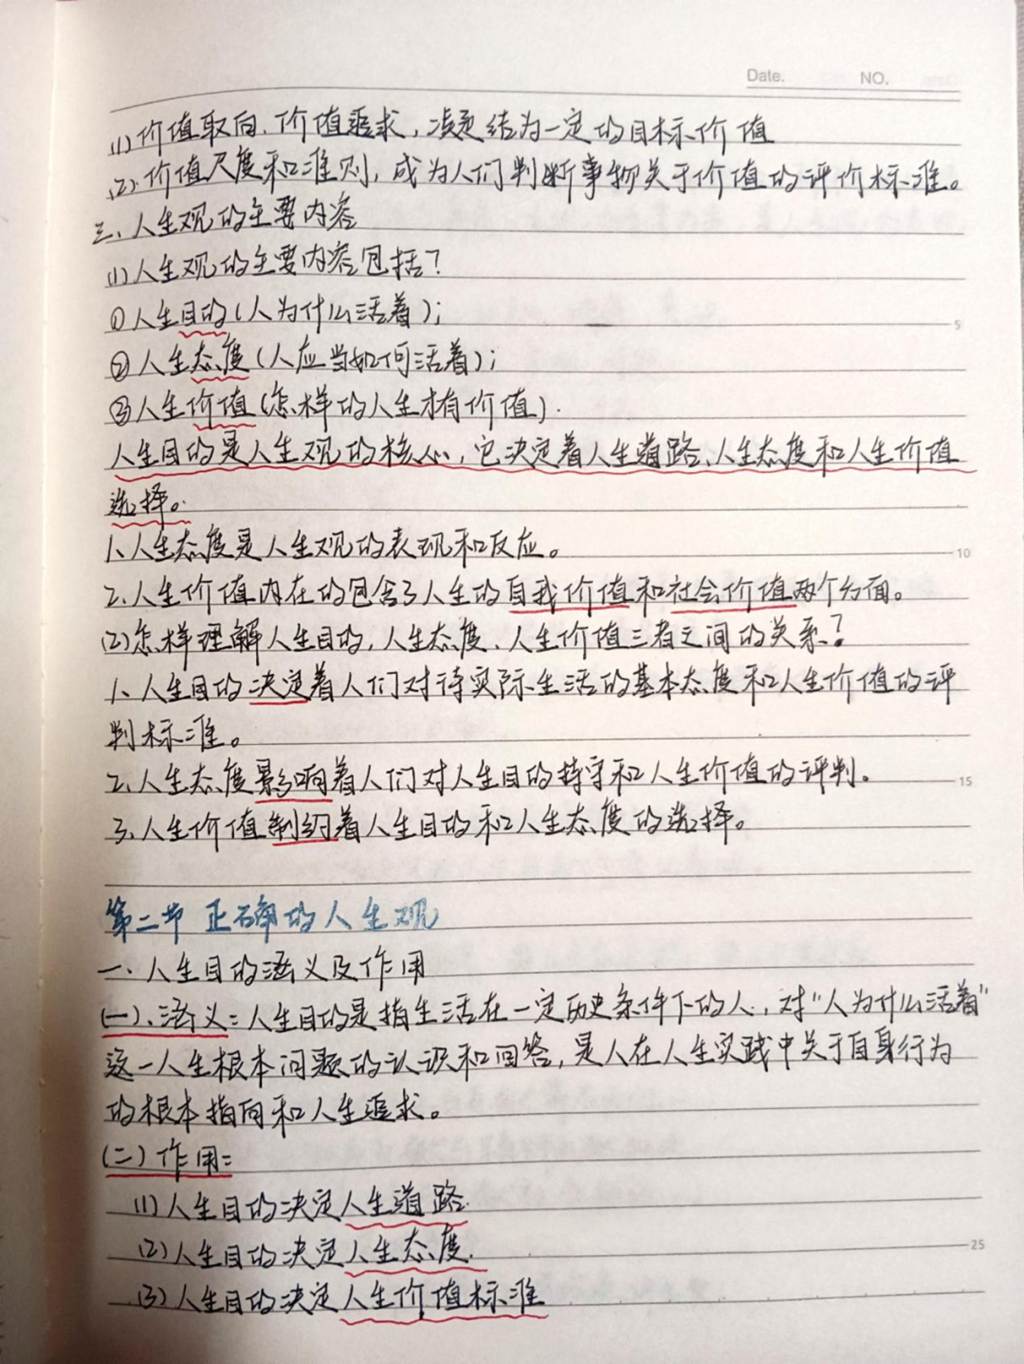 Date.	NO.
(1)价值取向、价值追求，凝结为一定的目标价值
(2).价值尺度和准则，成为人们判断事物关于价值的评价标准。
三、人生观的主要内容
(1)人生观的主要内容包括？
①人生目的(人为什么活着)；
②人生态度(人应当如何活着)；
③人生价值(怎样的人生才有价值).
人生目的是人生观的核心，它决定着人生道路、人生态度和人生价值
选择。
1、人生态度是人生观的表现和反应。
2.人生价值内在的包含了人生的自我价值和社会价值两个方面。
(2)怎样理解人生目的，人生态度、人生价值三者之间的关系？
1、人生目的决定着人们对待实际生活的基本态度和人生价值的评
判标准。
2、人生态度影响着人们对人生目的持守和人生价值的评判。
3、人生价值制约着人生目的和人生态度的选择。
第二节 正确的人生观
一、人生目的涵义及作用
(一)、涵义：人生目的是指生活在一定历史条件下的人，对“人为什么活着”
这一人生根本问题的认识和回答，是人在人生实践中关于自身行为
的根本指向和人生追求。
(二)作用：
(1)人生目的决定人生道路.
(2)人生目的决定人生态度.
(3)人生目的决定人生价值标准
5
10
15
25